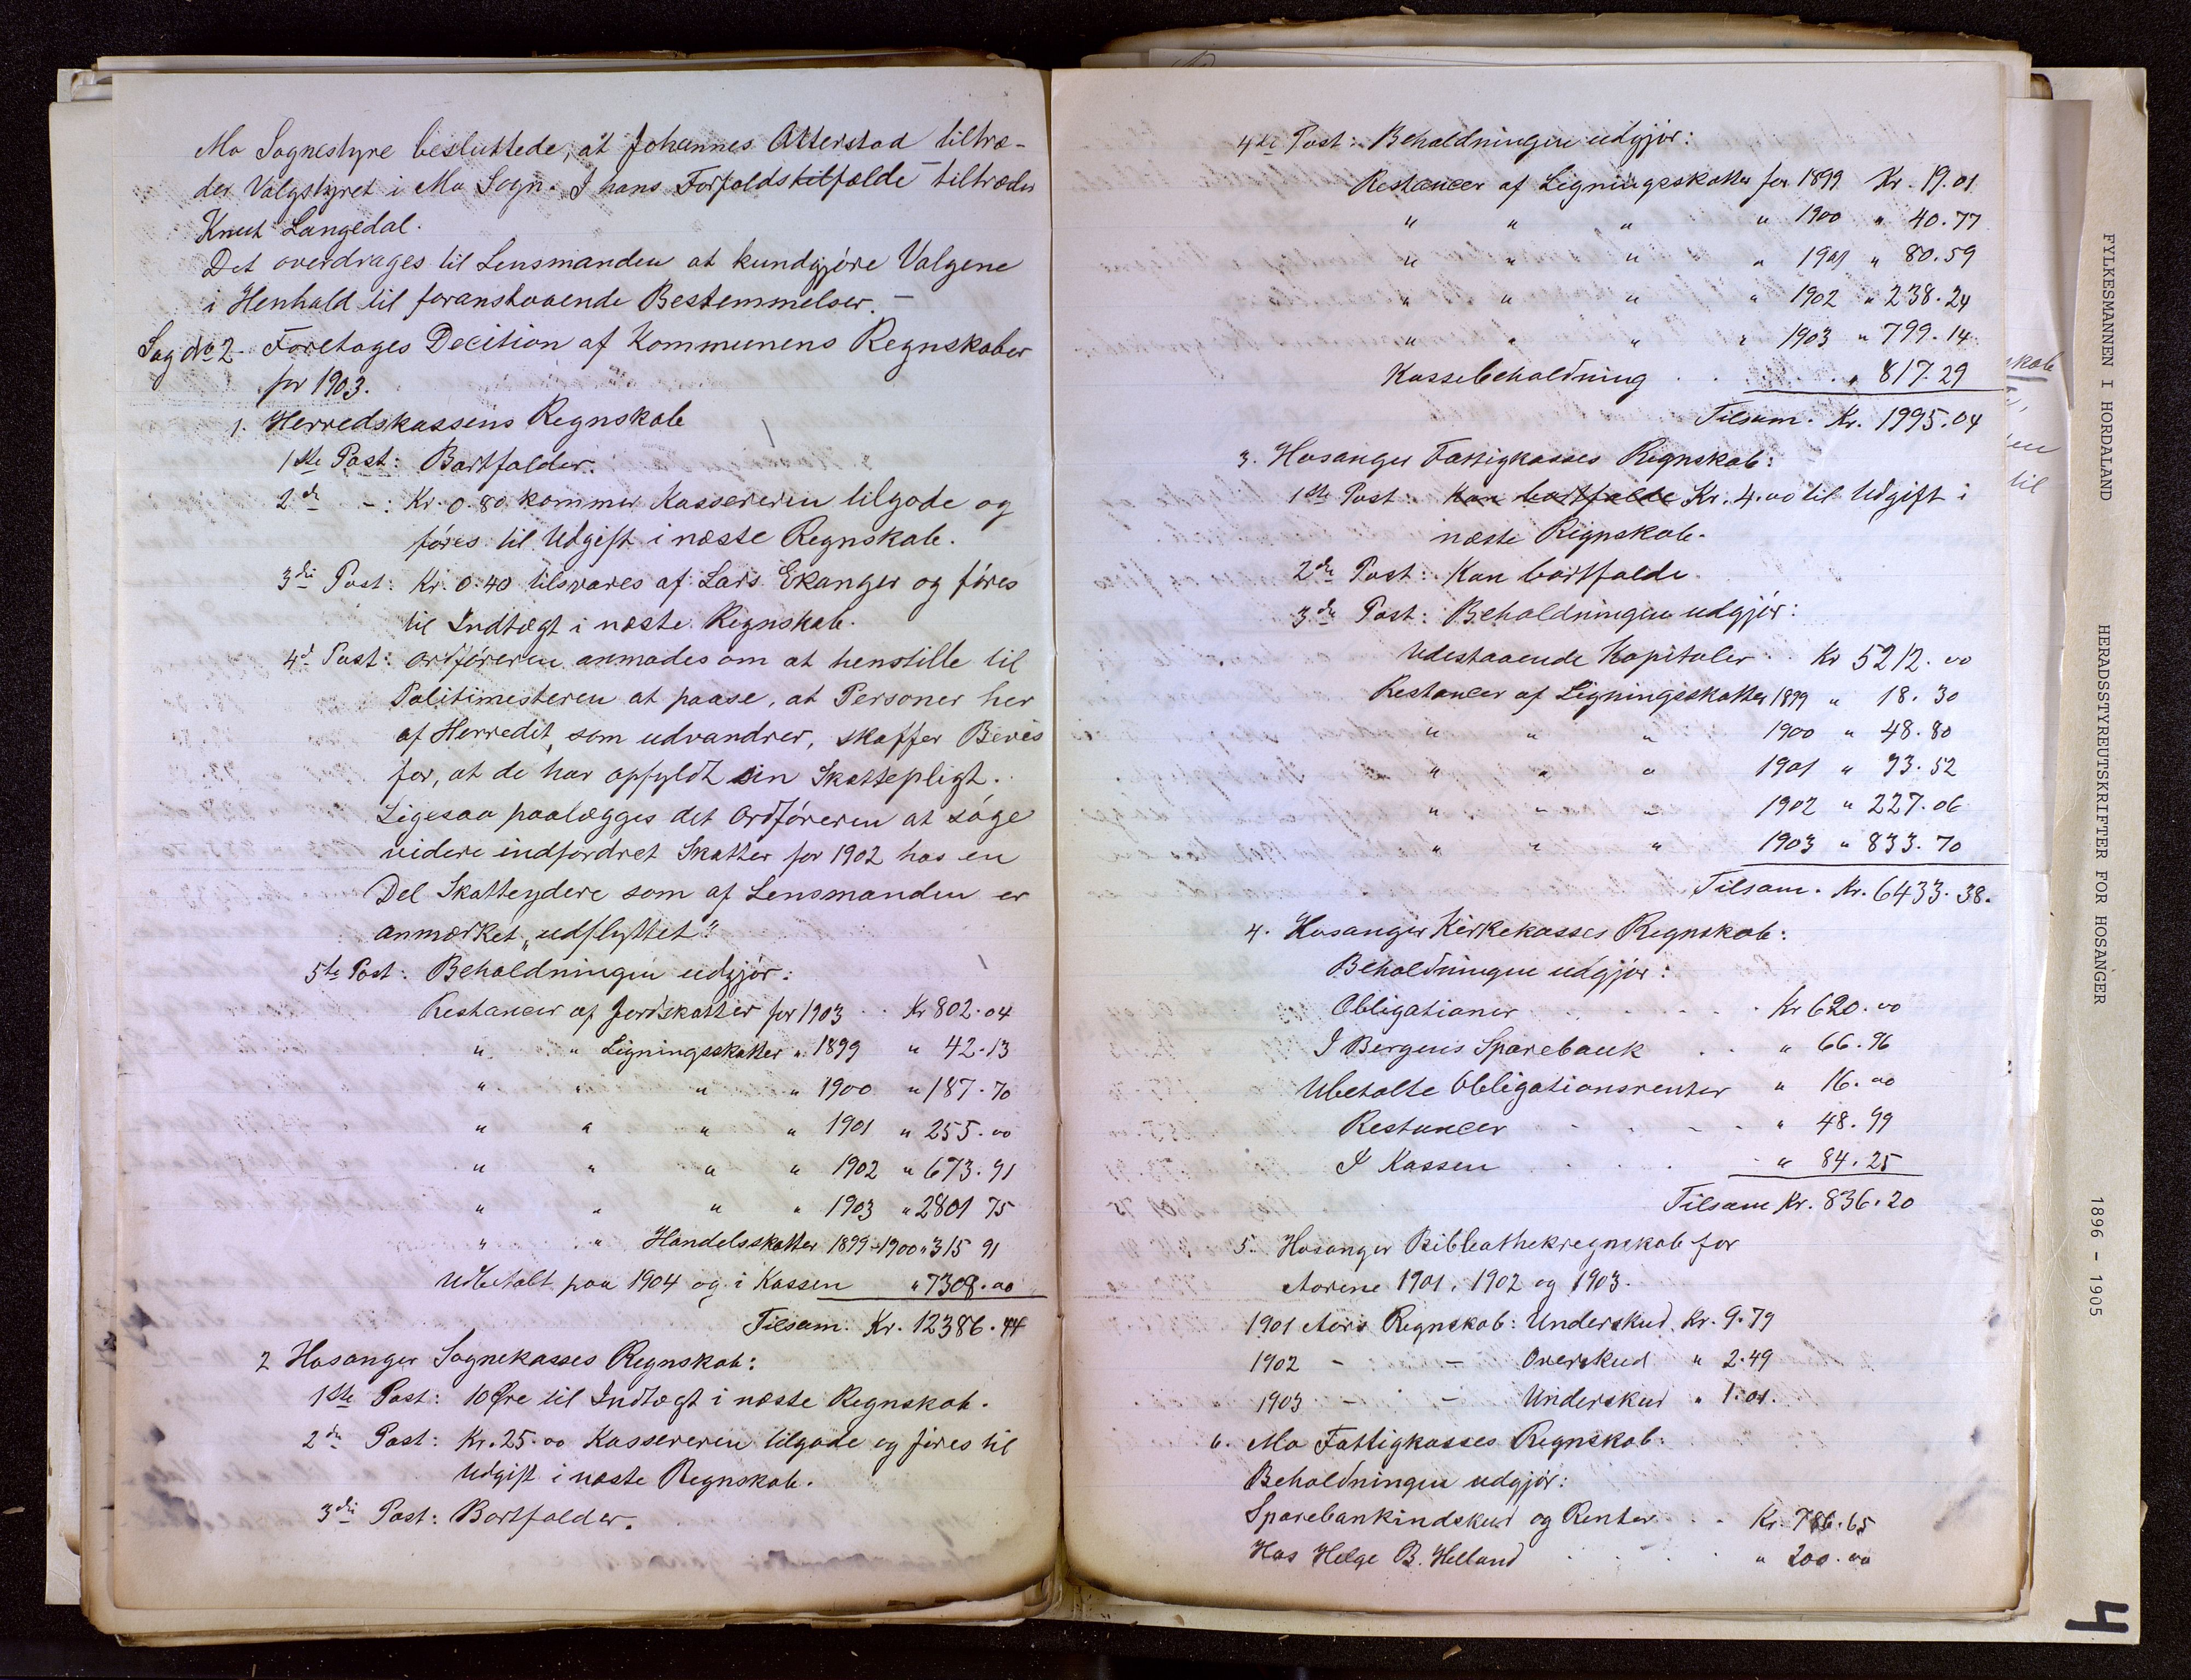 Mo Sognestyre besluttede, at Johannes Otterstad tiltræ-
der Valgstyret i Mo Sogn. I hans Forfaldstilfælde tiltræder
Knut Langedal.
Det overdrages til Lensmanden at kundgjöre Valgene
i Henhold til foranstaaende Bestemmelser. —
Sag No 2. Foretages Decition af Kommunens Regnskaber
for 1903.
1. Herredskassens Regnskab
1ste Post: Bortfalder.
2den -: Kr. 0.80 kommer Kassereren tilgode og
föres til Udgift i næste Regnskab.
3die Post: Kr. 0.40 tilsvares af Lars Ekanger og föres
til Indtægt i næste Regnskab.
4de Post: Ordföreren anmodes om at henstille til
Politimesteren at paase, at Personer her
af Herredet, som udvandrer, skaffer Bevis
for, at de har opfyldt sin Skattepligt.
Ligesaa paalægges det Ordföreren at söge
videre indfordret Skatter for 1902 hos en
Del Skatteydere som af Lensmanden er
anmærket „udflyttet".
5te Post: Beholdningen udgjör:
Restancer af Jordskatter for 1903 . . Kr 802.04
" " Ligningsskatter " 1899 " 42.13
" " " " 1900 " 187.70
" " " " 1901 " 255.00
" " " " 1902 " 673.91
" " " " 1903 " 2801 75
" " Handelsskatter 1899-1900 " 315 91
Udbetalt paa 1904 og i Kassen " 7308.00
Tilsam. Kr. 12386.44
2 Hosanger Sognekasses Regnskab:
1ste Post: 10 Öre til Indtægt i næste Regnskab.
2den Post: Kr. 25.00 Kassereren tilgode og föres til
Udgift i næste Regnskab.
3die Post: Bortfalder.
4de Post: Beholdningen udgjör:
Restancer af Ligningsskatter for 1899 Kr. 19.01
" " " " 1900 " 40.77
" " " " 1901 " 80.59
" " " " 1902 " 238.24
" " " " 1903 " 799.14
Kassebeholdning . . . . " 817.29
Tilsam. Kr. 1995.04
3. Hosanger Fattigkasses Regnskab:
1ste Post: Kan bortfalde Kr. 4.00 til Udgift i
næste Regnskab.
2den Post: Kan bortfalde.
3die Post: Beholdningen udgjör:
Udestaaende Kapitaler . . Kr 5212.00
Restancer af Ligningsskatter 1899 " 18.30
" " " 1900 " 48.80
" " " 1901 " 93.52
" " " 1902 " 227.06
" " " 1903 " 833.70
Tilsam. Kr. 6433.38.
4. Hosanger Kirkekasses Regnskab:
Beholdningen udgjör:
Obligationer . . . . . Kr 620.00
I Bergens Sparebank . . " 66.96
Ubetalte Obligationsrenter " 16.00
Restancer . . . . " 48.99
I Kassen . . . . " 84.25
Tilsam Kr. 836.20
5. Hosanger Bibliothekregnskab for
Aarene 1901, 1902 og 1903.
1901 Aars Regnskab: Underskud Kr. 9.79
1902 - - Overskud " 2.49
1903 - - Underskud " 1.01.
6. Mo Fattigkasses Regnskab:
Beholdningen udgjör:
Sparebankindskud og Renter . . Kr. 786.65
Hos Helge B. Helland . . . . " 200.00
skab
en
til
FYLKESMANNEN I HORDALAND
HERADSSTYREUTSKRIFTER FOR HOSANGER
1896 - 1905
4